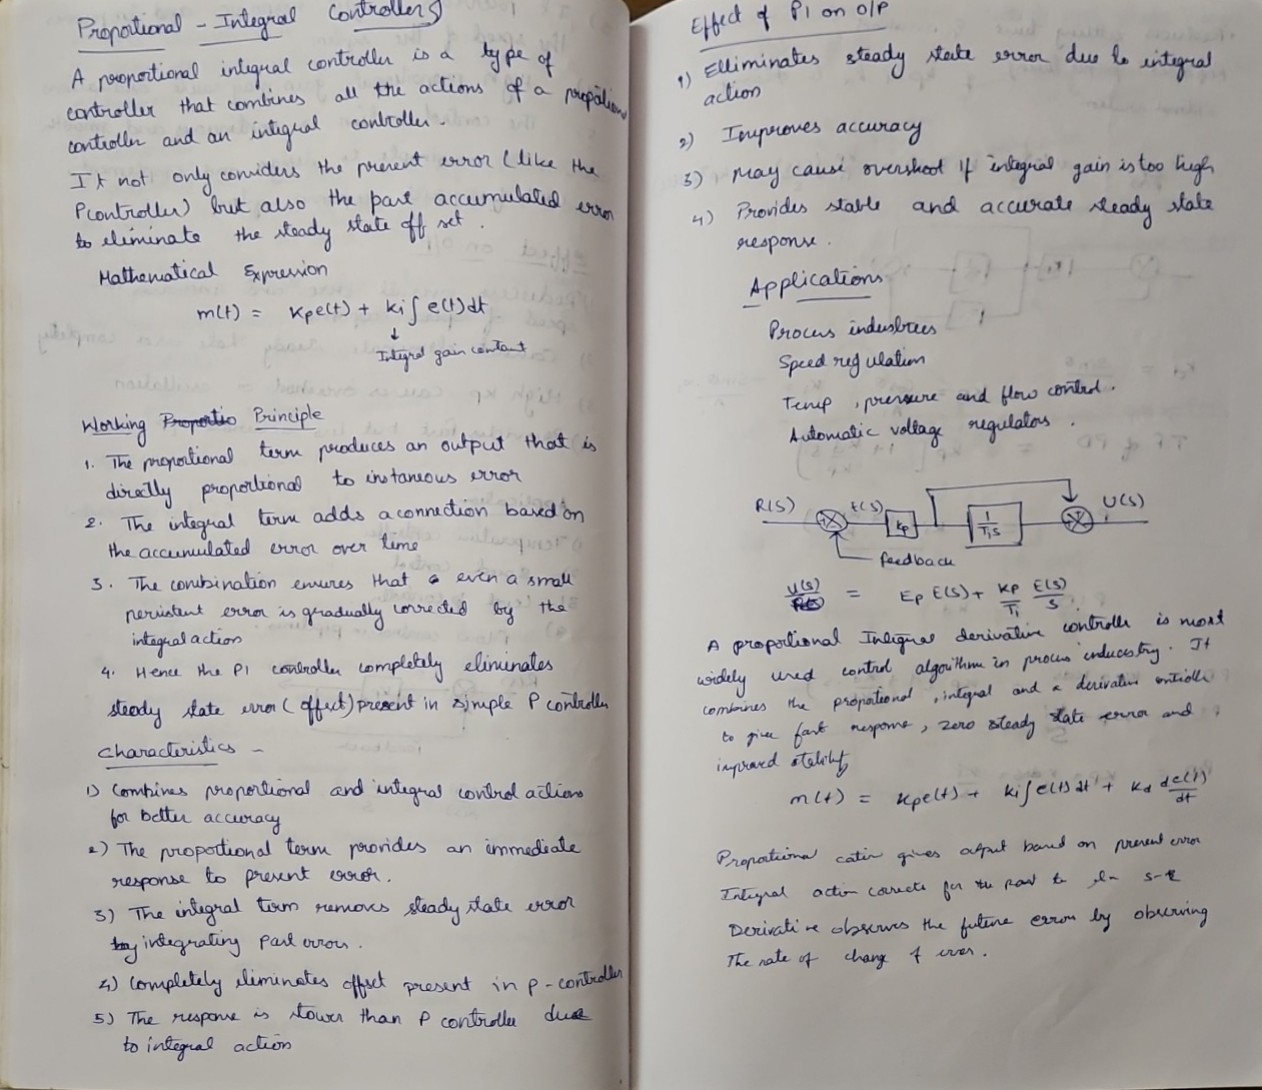 Proportional - Integral Controllers
A proportional integral controller is a type of
controller that combines all the actions of a propotional
controller and an integral controller.
It not only considers the present error (like the
P controller) but also the past accumulated error
to eliminate the steady state off set.
Mathematical Expression
m(t) = Kpe(t) + ki∫e(t)dt
↓
Integral gain contant
Working Proportio Principle
1. The proportional term produces an output that is
directly proportional to instaneous error
2. The integral term adds a connection based on
the accumulated error over time
3. The combination ensures that even a small
persistent error is gradually corrected by the
integral action
4. Hence the PI controller completely eliminates
steady state error (offset) present in simple P controller
Characteristics -
1) Combines proportional and integral control actions
for better accuracy
2) The proportional term provides an immediate
response to present error.
3) The integral term removes steady state error
by integrating past errors.
4) Completely eliminates offset present in p-controller
5) The response is slower than P controller due
to integral action
Effect of PI on O/P
1) Elliminates steady state error due to integral
action
2) Improves accuracy
3) May cause overshoot if integral gain is too high
4) Provides stable and accurate steady state
response.
Applications
Process industries
Speed regulation
Temp, pressure and flow control.
Automatic voltage regulators.
R(S) E(S) Kp 1/TiS U(S)
feedback
U(s)/R(s) = Ep E(s) + Kp/Ti E(s)/S
A proportional Integral derivative controlle is most
widely used control algorithm in process inducstry. It
combines the proportional, integral and a derivative
to give fast response, zero steady state error and
improved stability
m(t) = Kpe(t) + ki∫e(t)dt + Kd de(t)/dt
Proportional gives output based on present error
Integral action corrects for the past
Derivative observes the future error by observing
The rate of change of error.